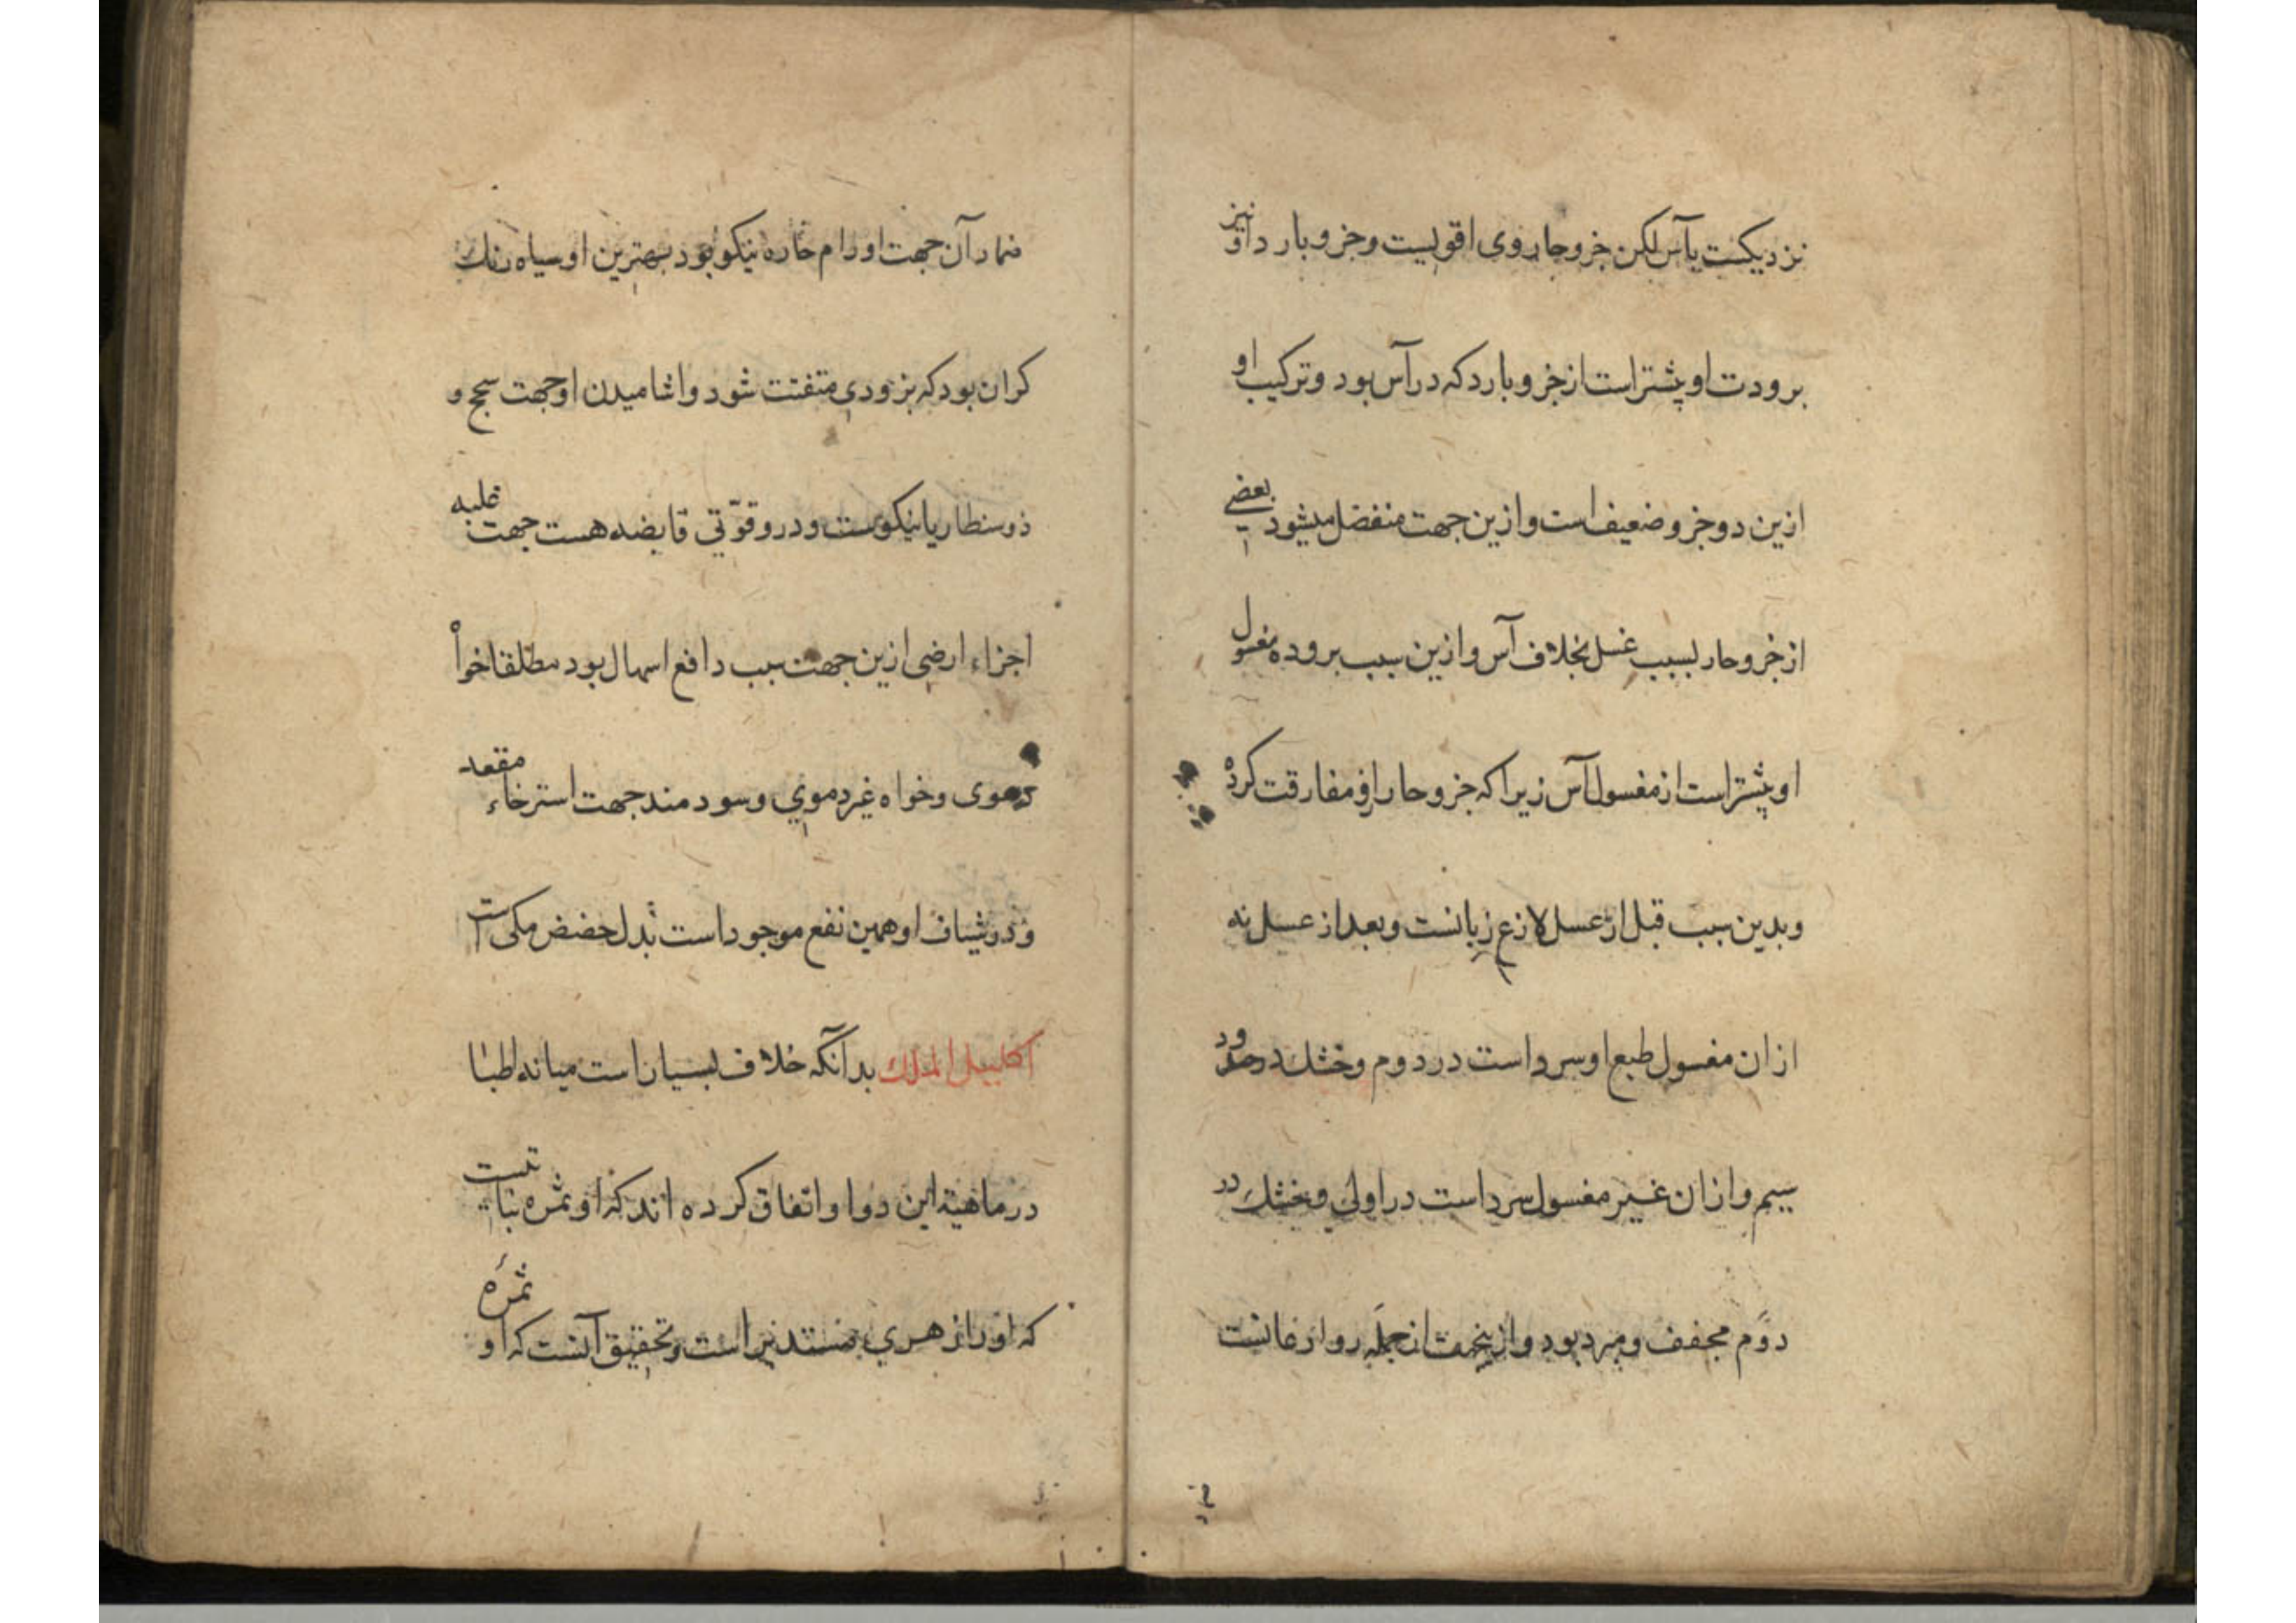 نزدیکست بآس لکن جزو حار وی اقویست و جزو بارد او نیز
برودت او پیشتر است از جزو بارد که در آس بود و ترکیب او
ازین دو جزو ضعیف است و ازین جهت منفصل میشود بعضی
از جزو حار بسبب غسل بخلاف آس و ازین سبب بروده مغسول
او پیشتر است از مغسول آس زیرا که جزو حار ازو مفارقت کرده
و بدین سبب قبل از غسل لاذع زبانست و بعد از غسل نه
از ان مغسول طبع او سرد است در دوم و خشک در حدود
سیم و از ان غیر مغسول سرد است در اولی و خشک در
دوم مجفف و مبرد بود و ازینجهت از جمله روادعانست
ضماد آن جهت اورام حاره نیکو بود بهترین او سیاه رنک
کران بود که بزودی متفتت شود و اشامیدن او جهت سحج و
ذوسنطاریا نیکوست و درو قوّتی قابضه هست جهت غلبه
اجزاء ارضی ازین جهت سبب دافع اسهال بود مطلقا خواه
دموی و خواه غیر دموی و سودمند جهت استرخاء مقعد
و در شیاف او همین نفع موجود است بدل حضض مکی است
اکلیل الملک بدانکه خلاف بسیار است میانه اطبا
در ماهیة این دوا و اتفاق کرده اند که او ثمره نباتیست
که او را زهری مستدیر است و تحقیق آنست که او ثمره